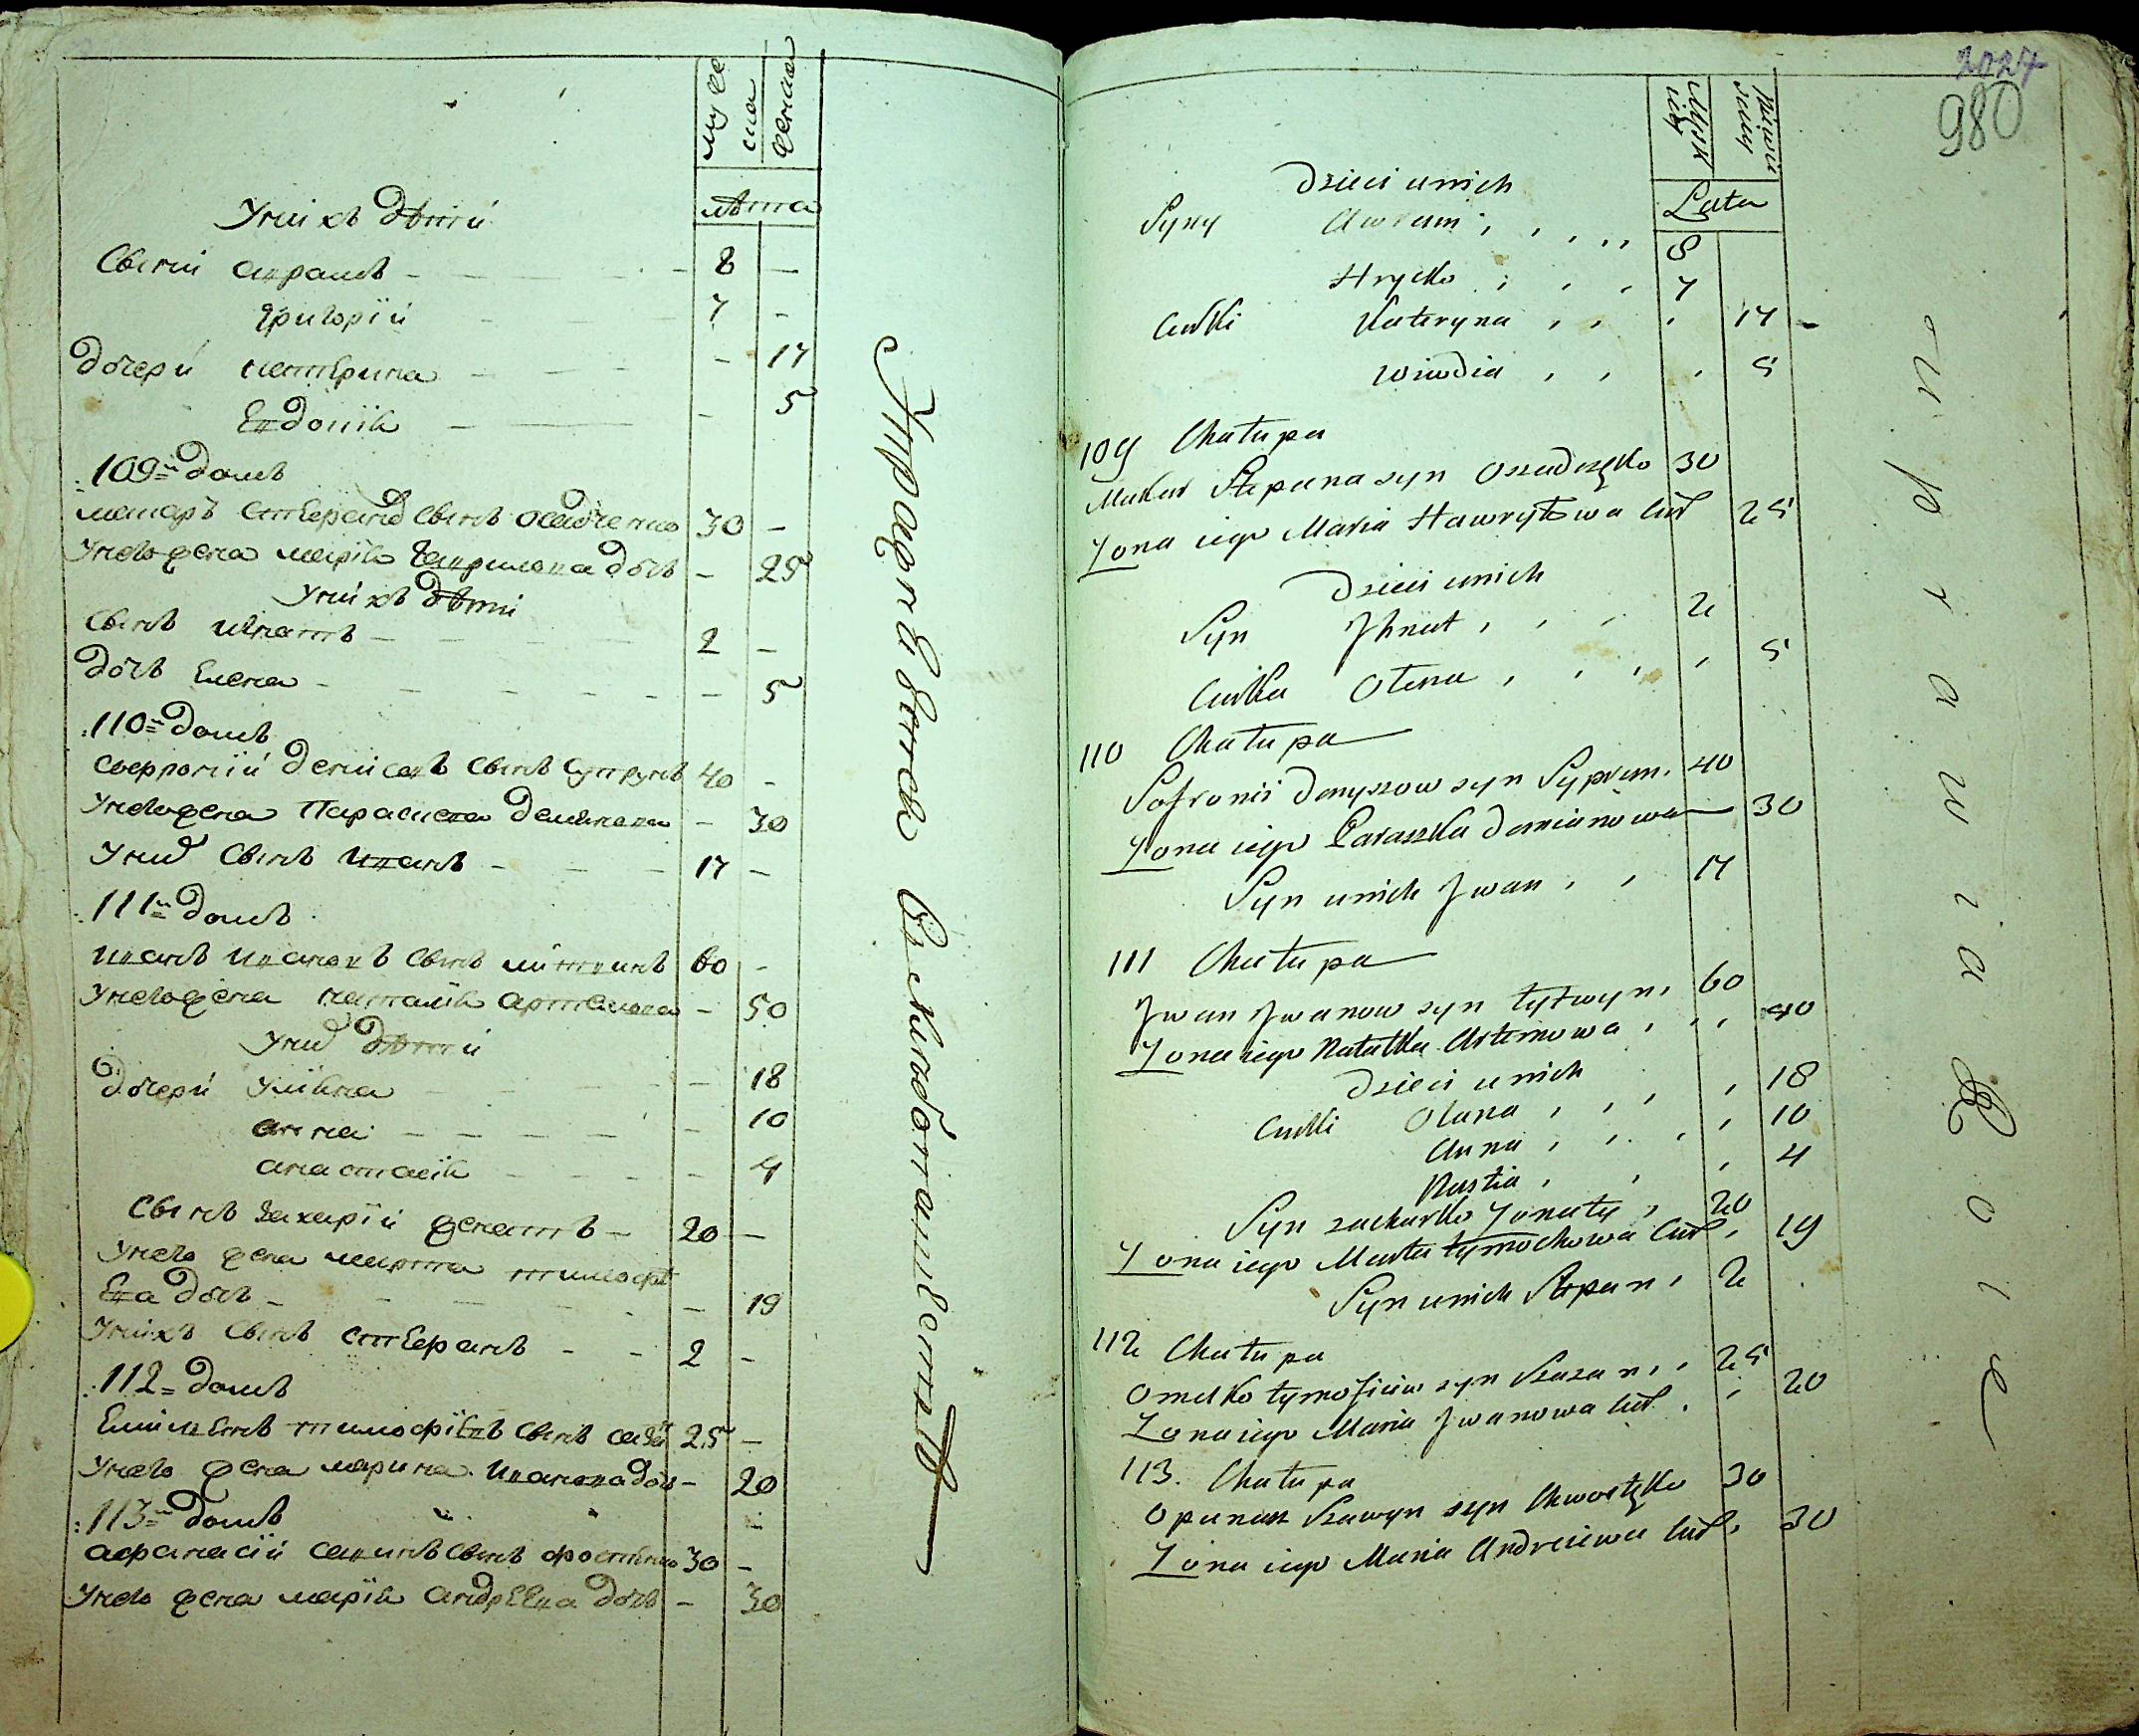 мужеска
женска
лѣта
У них дѣти
Сыни аврамъ 8 –
григорій 7 –
дочери катерина – 17
Евдокія – 5
109й домъ
макаръ степановъ сынъ осадченко 30 –
У него жена марія гаврилова дочь – 25
У нихъ дѣти
Сынъ игнатъ 2 –
дочь Елена – 5
110й домъ
Софроній денисовъ сынъ супрунъ 40 –
У него жена Параскева демянова – 30
У них сынъ иванъ 17 –
111й домъ
иванъ ивановъ сынъ литвинъ 60 –
У него жена наталія артемова – 50
У них дѣти
дочери уляна – 18
анна – 10
анастасія – 4
Сынъ захарій женатъ 20 –
У него жена марта тимофѣ
Ева дочь – 19
У нихъ сынъ степанъ 2 –
112й домъ
Емілѣянъ тимофіевъ сынъ 25 –
У него жена марина иванова дочь – 20
113й домъ
афанасій савинъ сынъ фостенко 30 –
У него жена марія андрѣева дочь – 30
2027
980
Męskiey
Lata
Dzieci u nich
Syny Awram 8
Hrycko 7
Curki Kateryna 17
Wiwdia 5
109 Chałupa
Makar Stepana syn Osadczęko 30
Zona iego Maria Hawryłowa Cur 25
Dzieci u nich
Syn Jhnat 2
Curka Olena 5
110 Chałupa
Sofronii Denyszow syn Syprun 40
Zona iego Paraszka Demianowa 30
Syn u nich Jwan 17
111 Chałupa
Jwan Jwanow syn Łytwyn 60
Zona iego Natałka Artemowa 40
Dzieci u nich
Curki Olana 18
Anna 10
Nastia 4
Syn zacharko Zonaty 20
Zona iego Marta tymochowa Cur 19
Syn u nich Stepan 2
112 Chałupa
Omelko tymofiiew syn Szazan 25
Zona iego Maria Jwanowa Cur 20
113. Chałupa
Opanas Szawyn syn Chwostęko 30
Zona iego Maria Andreiewa Cur 30